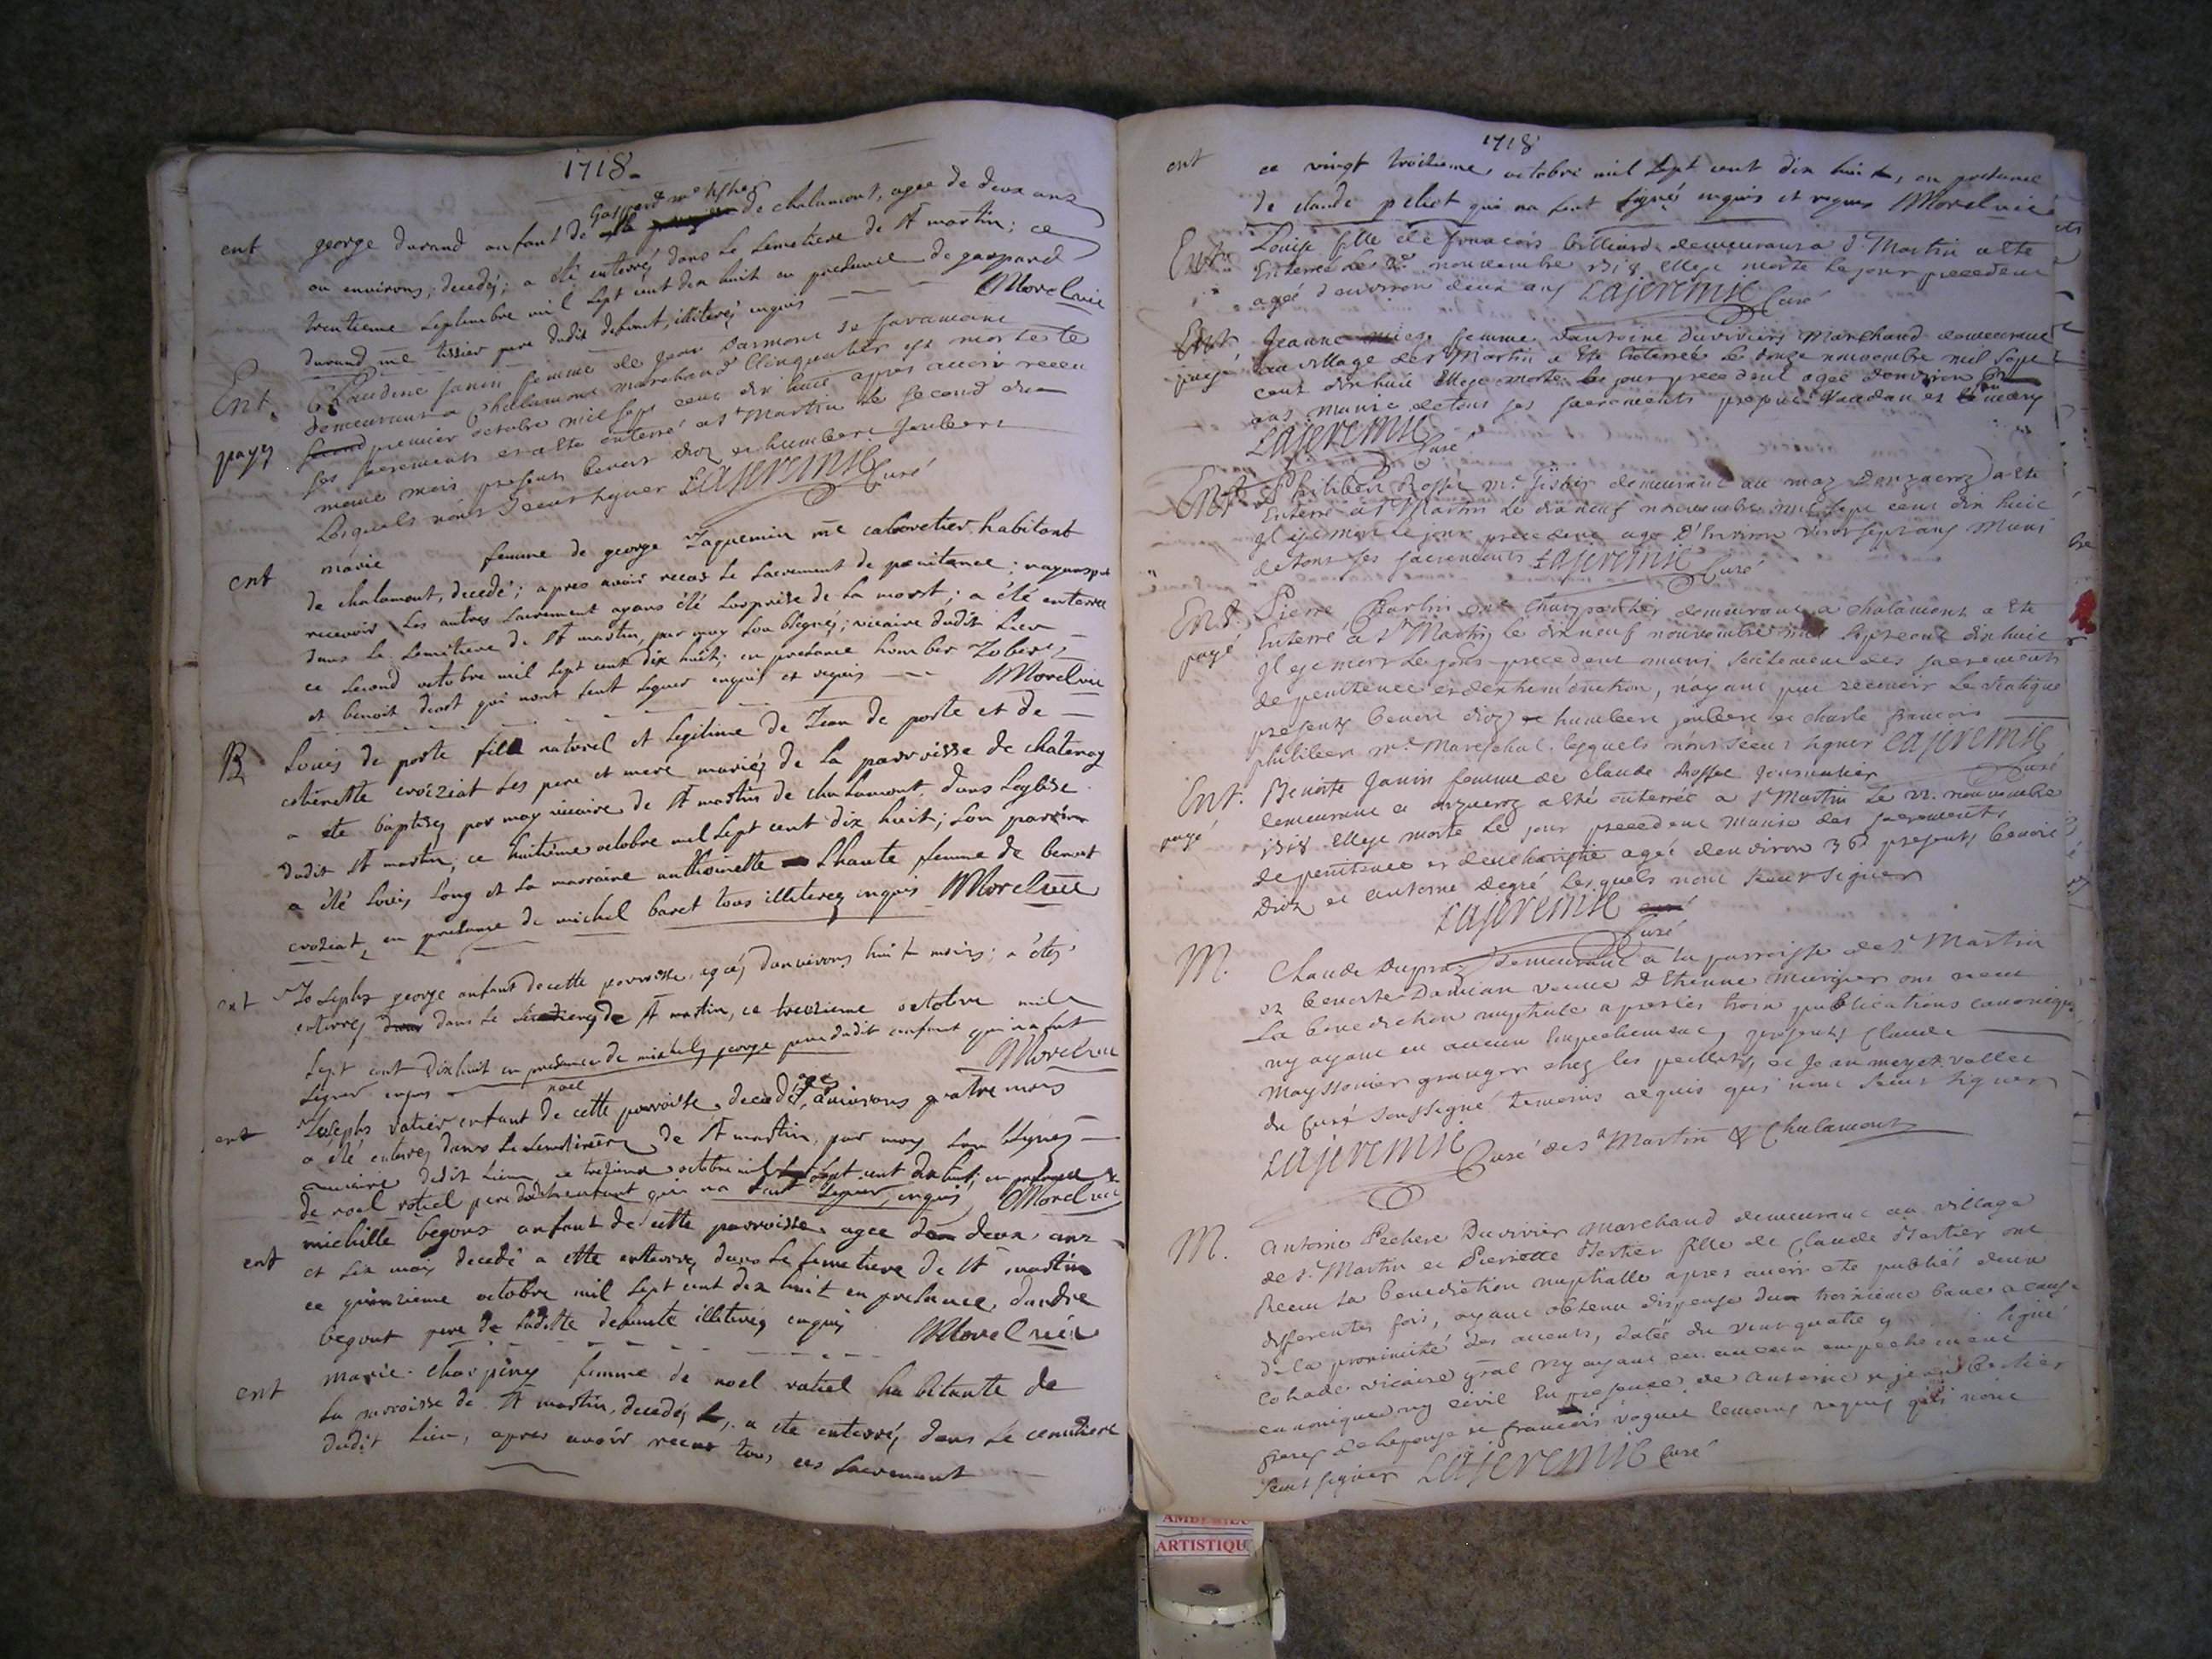 1718.
Gaspard me tisher
ent george durand anfant de de chalamont, agee de deux ans
ou environs, decedéz; a été enterréz dans Le Semetiere de St martin; ce
trentieme Septembre mil Sept cent dix huit en presence de gaspard
durand me tissier pere dudit defunct, illiterez enquis Morel vic
Ent. Claudine Janin femme de Jean
payez demeurant a Chalamont marchand Clinqualier est morte le
premier octobre mil sept cent dix huit apres avoir receu
ses sacrements et a ete enterré a St Martin le second du
meme mois presents benoit droz et humbert Joubert
Lesquels n'ont sceut signer Lajeremie Curé
ent marie femme de george Jaquemin me cabaretier habitant
de chalamont, decedé; apres avoir receu Le Sacrement de penitance;
recevoir Les autres Sacrement ayans été Surprise de La mort; a été enterrée
dans Le Semitiere de St martin, par moy Sousbsignéz; vicaire dudit Lieu
ce Second octobre mil Sept cent dix huit; en presance humber Jobert,
et benoit droct qui nont Seut Signer enquis et requis Morel vic
B Louis de poste fils naturel et Legitime de Jean de poste et de
estienette croiziat Les pere et mere mariéz de La parroisse de chatenay
a ete baptisez par moy vicaire de St martin de chalamont, dans Leglise
dudit St martin, ce huitième octobre mil Sept cent dix huit; Son parrin
a été Louis Long et La marraine anthoinette Lhaute femme de benoit
croziat, en presance de michel baret tous illiterez enquis Morel vic
ent Josephz george anfant de cette parroisse, agéz danvirons huit mois; a étéz
enterrez dans Le de St martin, ce treizieme octobre mil
Sept cent dix huit en presance de michelz george pere dudit anfant qui na Sut
Signer enquis Morel vic
noel
ent Josephz ratier enfant de cette parroisse, decedéz, age danvirons quatre mois
a été enterrez dans Le de St martin, par moy Sou bsignéz
vicaire dudit Lieu ce treizieme octobre mil Sept cent dix huit, en presance
de noel ratiel pere dudit enfant qui na Seut Signer, enquis Morel vic
ent michille begons anfant de cette parroisse agee de deux ans
et Six mois decedé a este enterrez dans Le Semetiere de St martin
ce quinzieme octobre mil Sept cent dix huit en presance, dandre
begout pere de Laditte defunte illiteréz enquis Morel vic
ent marie charpiny femme de noel ratiel habitante de
La parroisse de St martin, decedéz, a ete enterréz dans Le cemitiere
dudit Lieu, apres avoir receu tous ces Sacrement
1718
ent ce vingt troisieme octobre mil Sept cent dix huit, en presance
de claude peliet qui na Seut Signé enquis et requis Morel vic
Ent. Louise fille de francois billiard demeurant a St Martin a ete
Enterrée Le 2e nouvembre 1718 Elle est morte le jour precedent
ageé d'environ deux ans Lajeremie Curé
Ent Jeanne femme d'antoine Duvivier Marchand demeurant
payé au village de St Martin a ete Enterrée Le onze nouvembre mil sept
cent dix huit Elle est morte le jour precedent ageé d'environ
ans munie de tous ses sacrements presents
Lajeremie Curé
Ent Philibert Roffé me demeurant au maz a ete
Enterré a St Martin Le dixneuf nouvembre mil sept cent dix huit
Il est mort le jour precedent agé d'Environ vint sept ans Muni
de tous ses sacrements Lajeremie Curé
Ent. Pierre Charlin me Charpantier demeurant a chalamont a ete
payé Enterré a St Martin le dixneuf nouvembre mil sept cent dix huit
Il est mort le jour precedent muni seulement des sacrements
de penitence et d'extrem'onction, n'ayant peu recevoir Le viatique
presents benoit droz humbert joubert et charle francois
philibert me Mareschal. lesquels n'ont sceut signer Lajeremie
Curé
Ent. Benoite Janin femme de claude Roffet Journalier
payé demeurant a a été enterrée a St Martin Le 22. nouvembre
1718 Elle est morte le jour precedent munie des sacrements
de penitence et d'eucharistie ageé denviron 36 presents benoit
Droz et antoine Degré lesquels n'ont sceut signer
Lajeremie
Curé
M. Claude Dupraz demeurant a la parroisse de St Martin
et benoite Damian veuve d'Etienne murgier ont receu
La benediction nuptiale apres les trois publications canoniques
ny ayant eu aucun Empechement, presents Claude
Mayssonier granger chez les peillets, et Jean meyer vallet
du Curé soussigné temoins requis qui n'ont sceut signer
Lajeremie Curé de St Martin & Chalamont
M. Antoine Pechere Duvivier marchand demeurant au village
de St Martin et Pierrette Bertier fille de Claude Bertier ont
Receu La benediction nuptialle apres avoir ete publiés deux
differentes fois, ayant obtenu dispense du troisieme banc a cause
de la proximité des auents, datée du vint quatre signé
Cohade vicaire gral ny ayant eu aucun empechement
canonique ny civil En presence de antoine et jean bertier
freres de l'epouse et francois voguet temoins requis qui n'ont
sceut signer Lajeremie Curé
ARTISTIQU